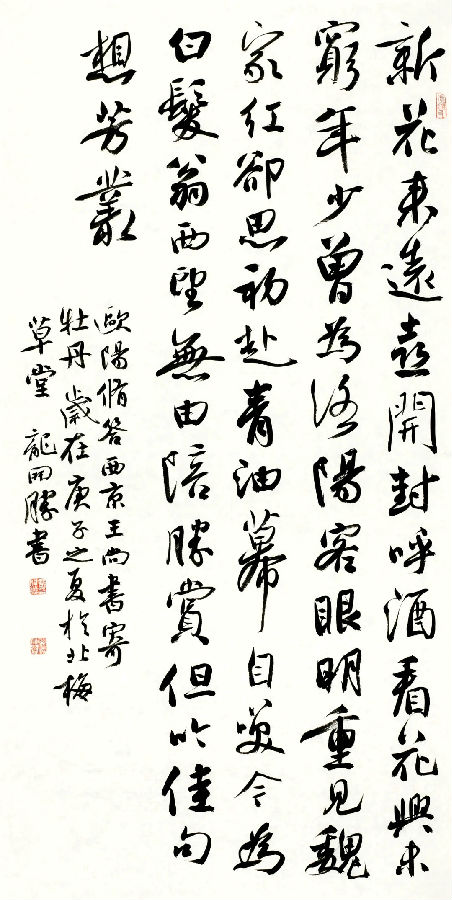 新花來遠喜開封呼酒看花興未
窮年少曾為洛陽客眼明重見魏
家紅卻思初赴青油幕自笑今為
白髮翁西望無由陪勝賞但吟佳句
想芳叢
歐陽脩答西京王尚書寄
牡丹歲在庚子之夏於北梅
草堂龍開勝書